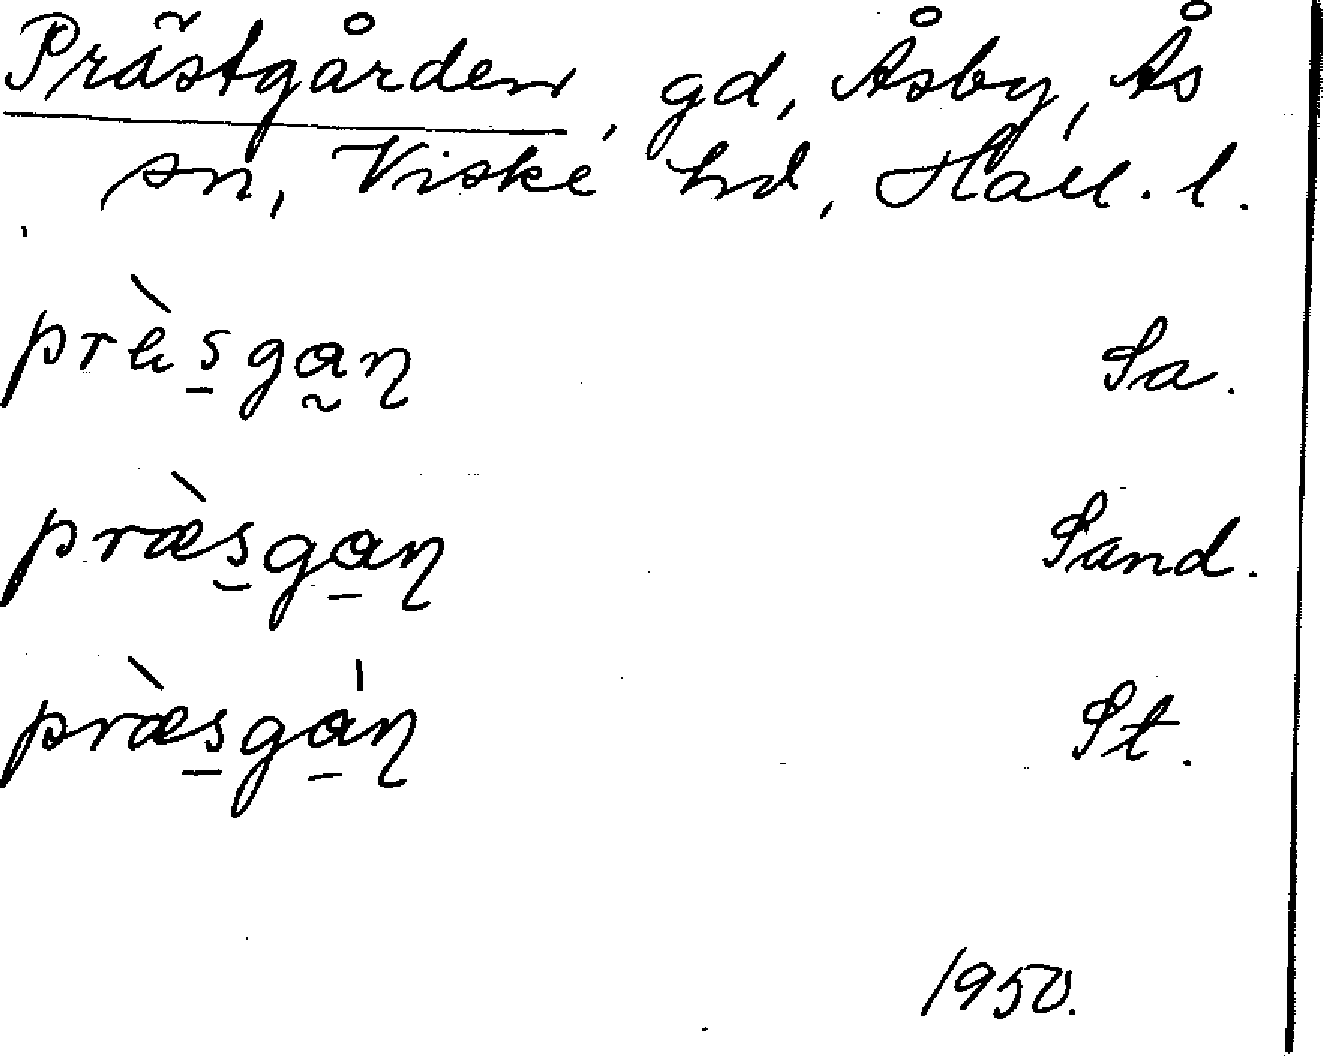 Prästgården, gd, Åsby, Ås
sn, Viske hd, Hall. l.
prä̀s̱ga̰ɳ Sa.
præ̀s̱ga̱ɳ Sand.
præ̀s̱ga̱̍ɳ St.
1950.